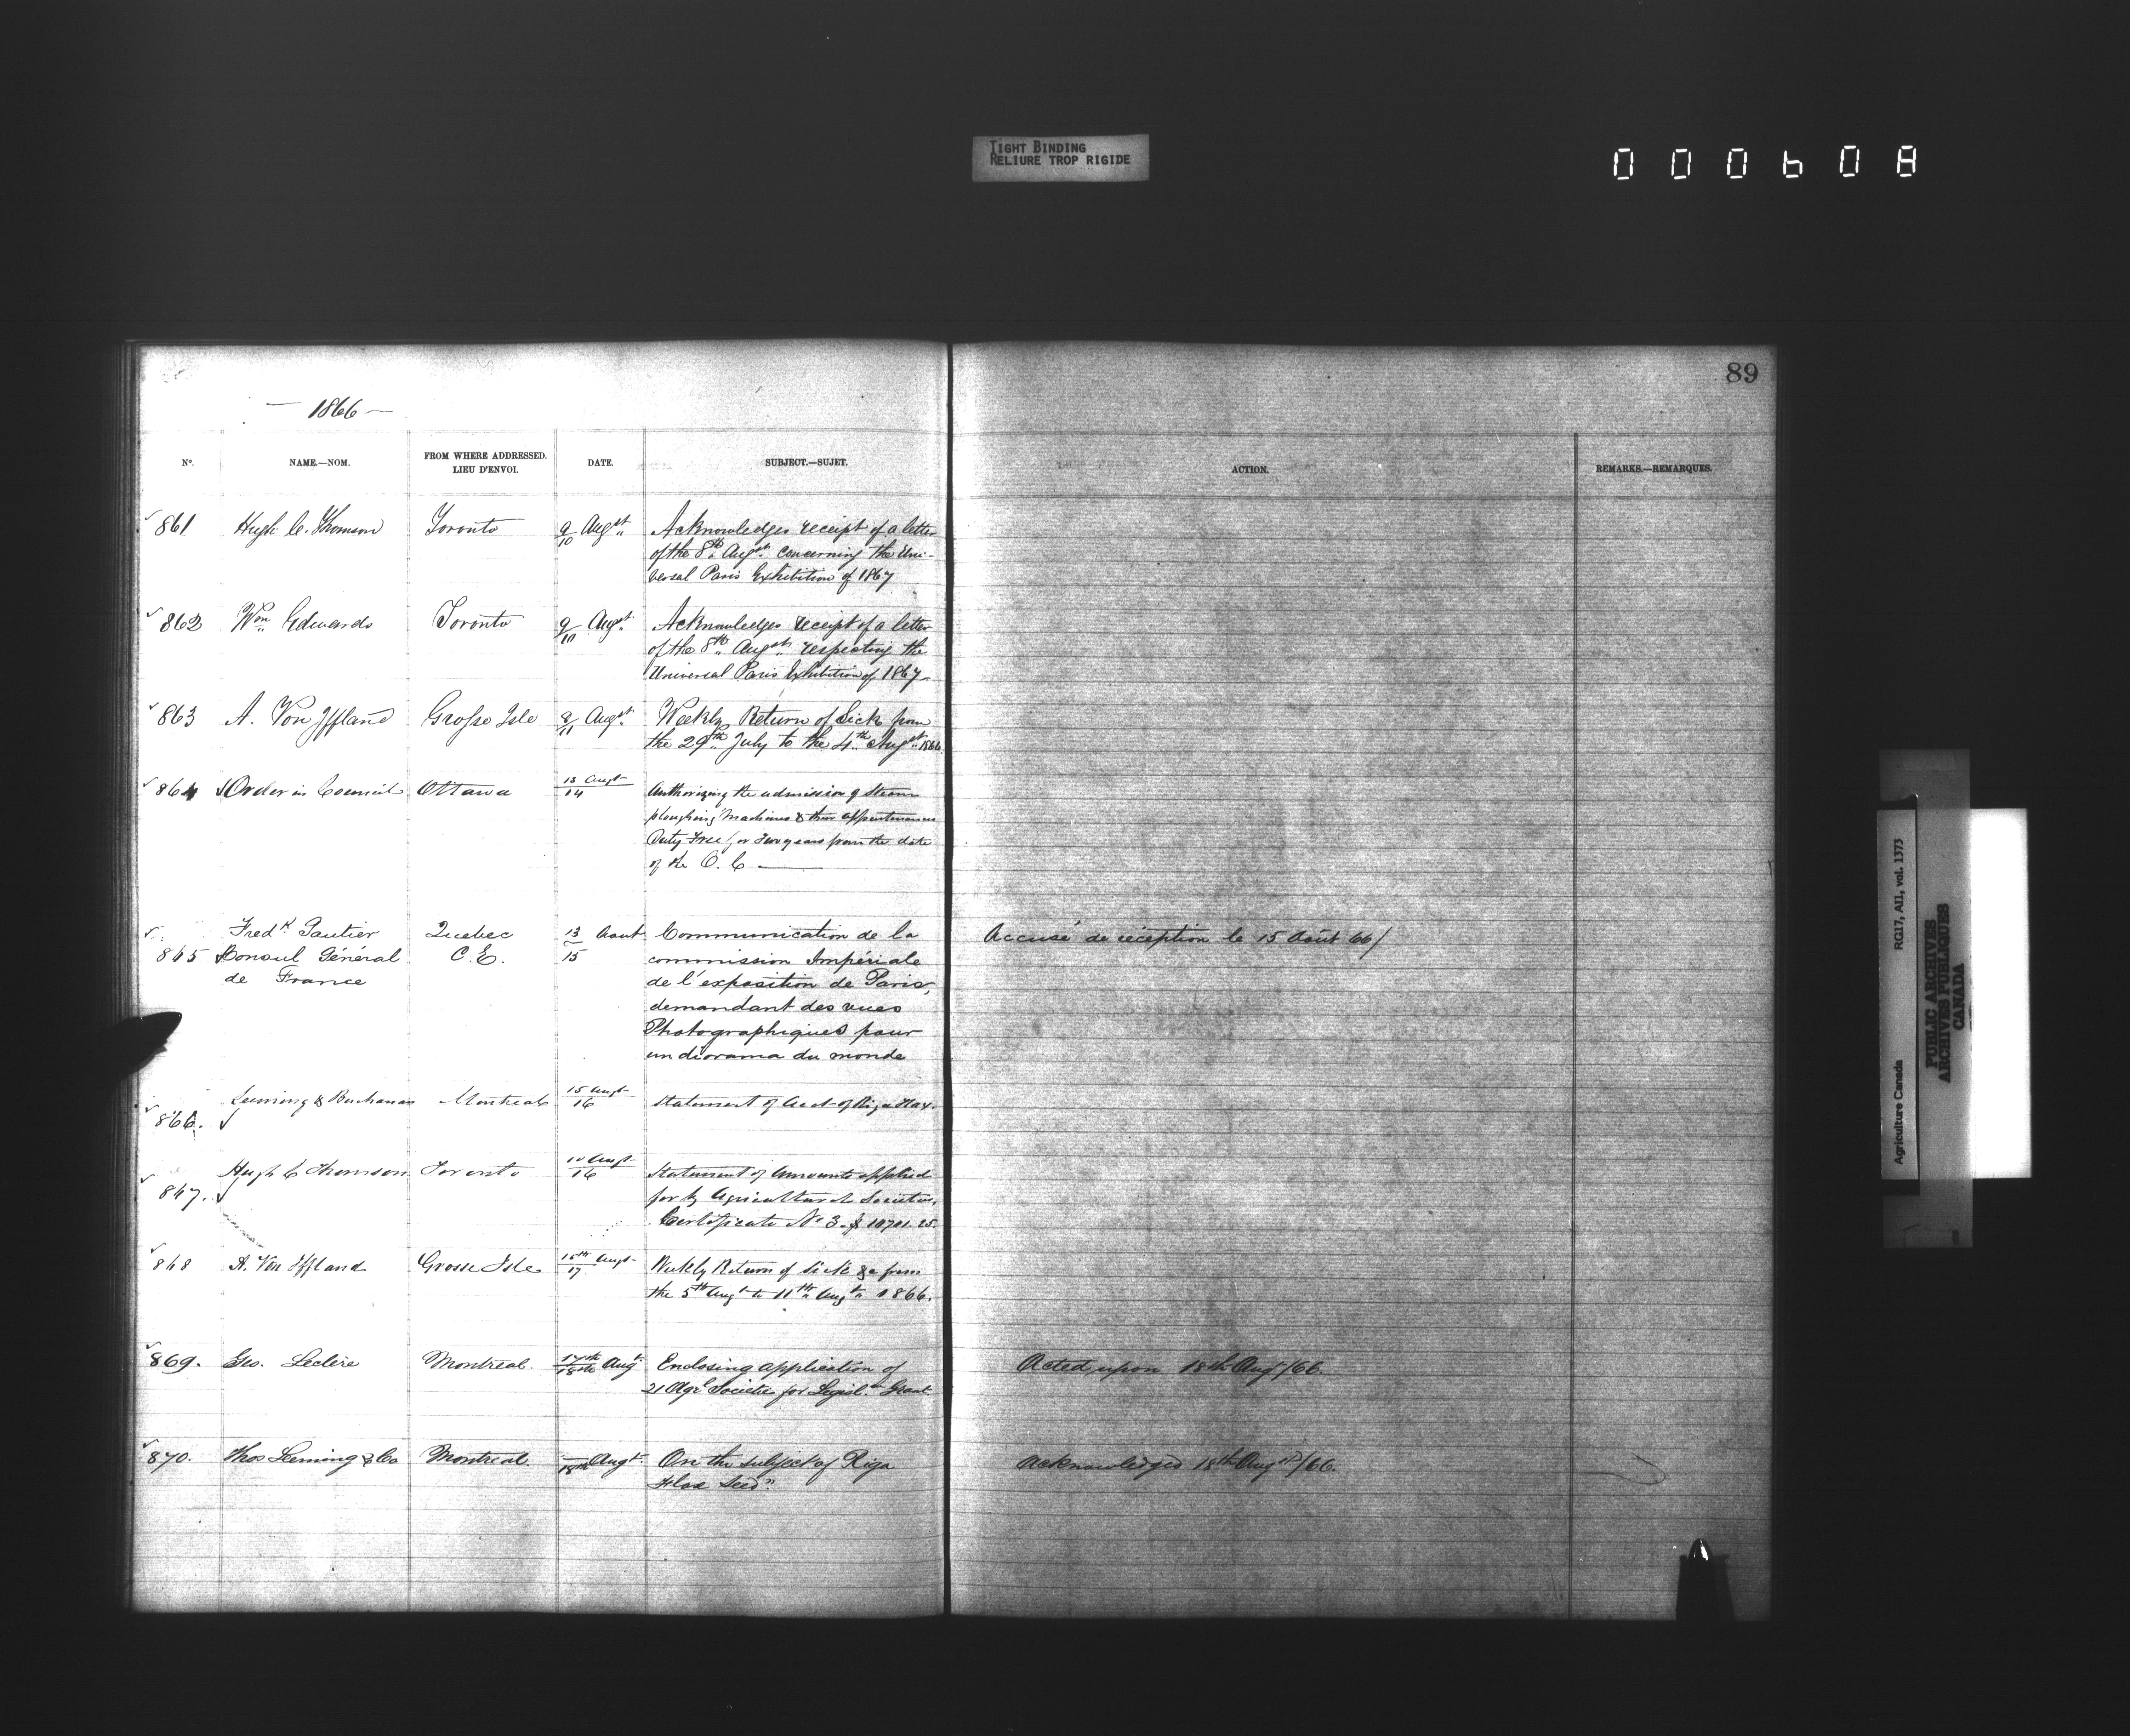 TIGHT BINDING
RELIURE TROP RIGIDE
000608
89
— 1866 —
No. NAME.—NOM. FROM WHERE ADDRESSED. LIEU D'ENVOI. DATE. SUBJECT.—SUJET. ACTION. REMARKS.—REMARQUES.
861 Hugh C. Thomson Toronto 9/10 Augst. Acknowledges receipt of a letter
of the 8th Augst. concerning the Uni-
versal Paris Exhibition of 1867
862 Wm Edwards Toronto 9/10 Augst. Acknowledges receipt of a letter
of the 8th Augst. respecting the
Universal Paris Exhibition of 1867
863 A. Von Iffland Grosse Isle 8/11 Augst. Weekly Return of Sick from
the 29th July to the 4th Augst. 1866.
864 Order in Council Ottawa 13/14 Augt Authorizing the admission of Steam
ploughing Machines & their appurtenances
Duty Free for Two years from the date
of the O. C —
Fredk Gautier Quebec 13/15 Aout Communication de la Accusé de réception le 15 Août 66/
865 Consul Général C.E. commission Impériale
de France de l'exposition de Paris,
demandant des vues
Photographiques pour
un diorama du monde
866. Leeming & Buchanan Montreal 15/16 Augt Statement of Acct of Riga Flax.
867. Hugh C Thomson Toronto 10/16 Augt Statement of Amounts applied
for by Agricultural Societies.
Certificate No 3. $ 10701.25.
868 A. Von Iffland Grosse Isle 15th/17 Augt Weekly Return of Sick &c from
the 5th Augt to 11th Augt 1866.
869. Geo. Leclère Montreal. 17th/18th Augt. Enclosing application of Acted upon 18th Augt/66.
21 Agrl Societies for Legisl. Grant.
870. Thos Leeming & Co Montreal. 18th Augt. On the subject of Riga Acknowledged 18th Augst/66.
Flax Seed"
Agriculture Canada RG17, AII, vol. 1373
PUBLIC ARCHIVES
ARCHIVES PUBLIQUES
CANADA